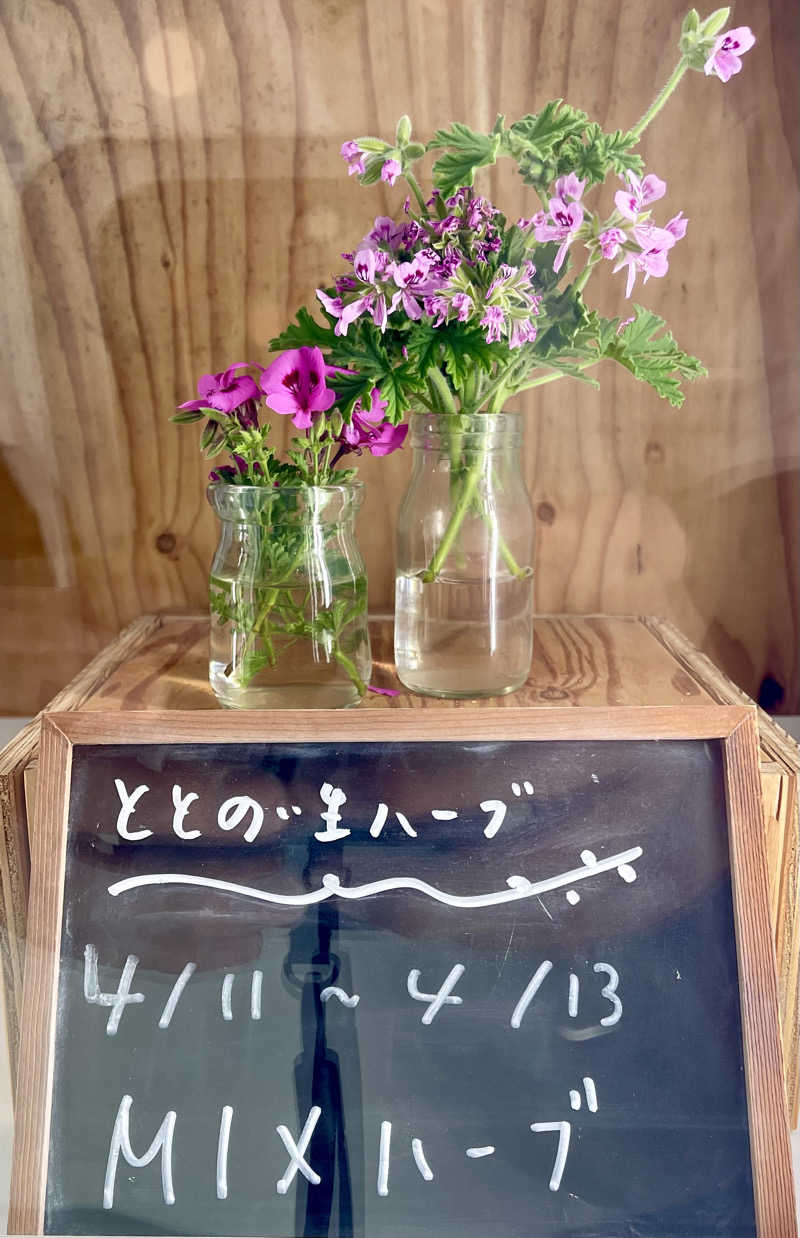 ととのゞ生ハーブ
4/11 ~ 4/13
MIXハーブ